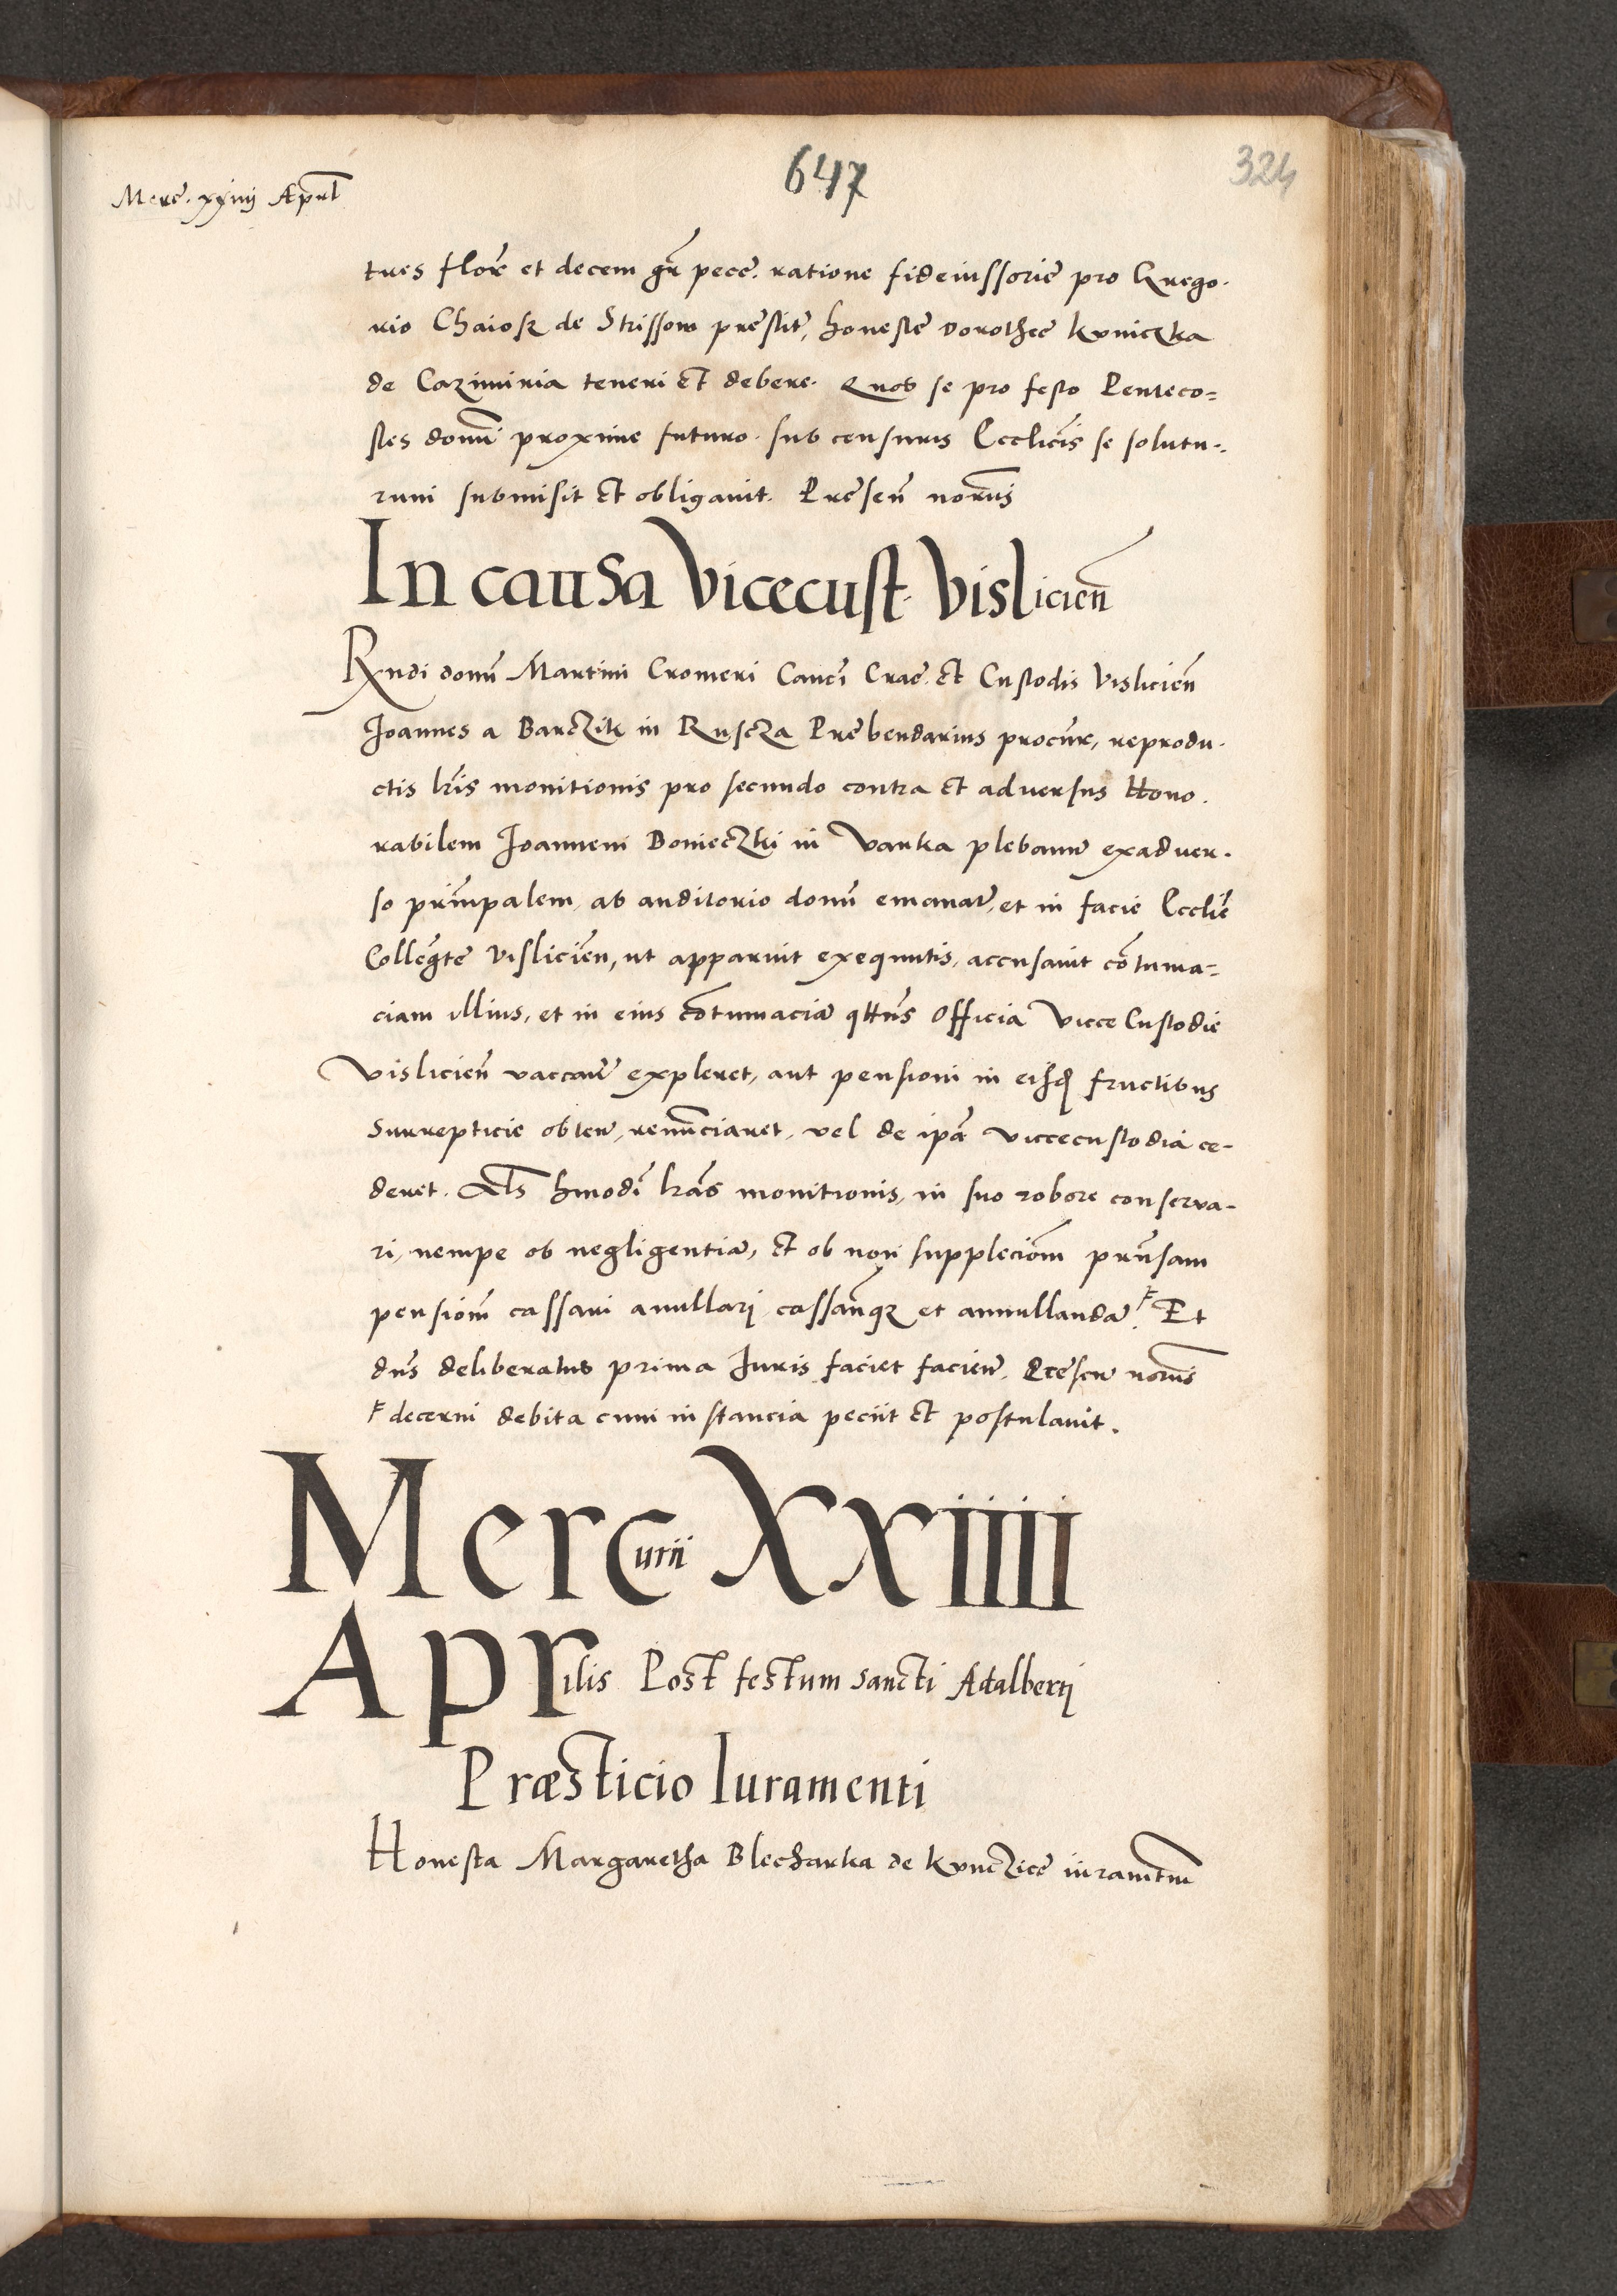 647
324
Merc. xxiiij Apríl
tres flore et decem gr pece. ratione fideiussorie pro Grego-
rio Chaiosk de Strissow prestite, honeste Dorothee Kuniczka
de Cazimiria teneri et debere. Quos se pro festo Penteco=
stes domi proxime futuro sub censuris Ecclicis se solutu-
rum submisit et obligavit. Presen norus
In causa Vicecust. Vislicien
Rndi domi Martini Cromeri Canci Crac. et Custodis Vislicien
Joannes a Barczik in Ruscza Prebendarius procur, reprodu-
ctis lris monitionis pro secundo contra et adversus Hono.
rabilem Joannem Bonieczki in Vanka plebanu exadver-
so principalem, ab auditorio domi emanat, et in facie Ecclie
Collegte Vislicien, ut apparuit exequutis, accusavit contuma-
ciam illius, et in eius contumacia qttns Officia Vicce Custodie
Vislicien vaccane expleret, aut pensioni in eisd fructibus
surrepticie obten, renunciaret, vel de ipa viccecustodia ce-
deret. Als hmodi lras monitionis, in suo robore conserva-
ri, nempe ob negligentia, et ob non supplecion prensam
pension cassari anullari cassanqz et annullanda F Et
dns deliberatus prima Iuris faciet facien. Presen norus
F decerni debita cum instancia peciit et postulavit.
Mercurii XXiiii
Aprilis Post festum sancti Adalberti
Præsticio Iuramenti
Honesta Margaretha Blecharka de Kunczice iuramtum